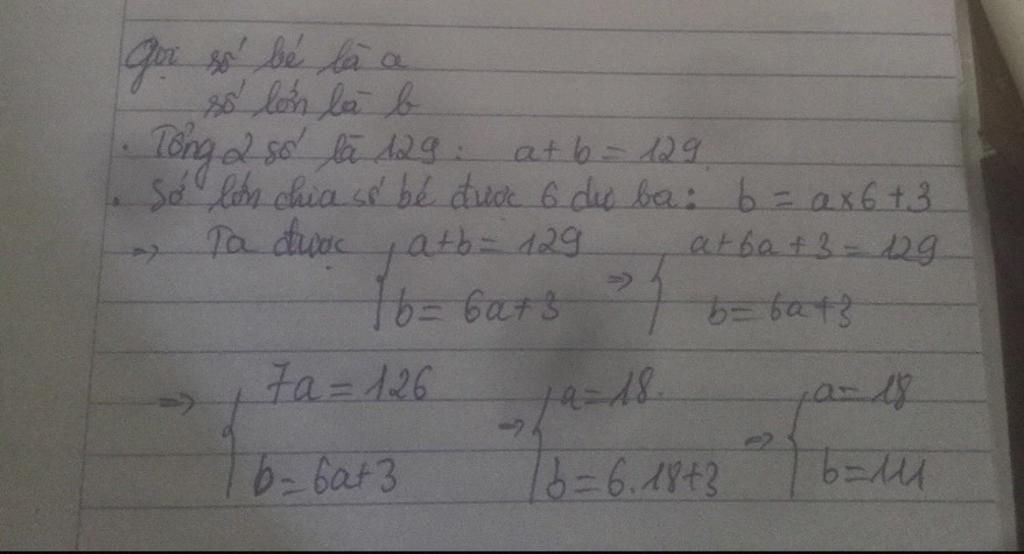 Gọi số bé là a
số lớn là b
. Tổng 2 số là 129: a+b=129
. Số lớn chia số bé được 6 dư ba: b = a×6+3
=> Ta được { a+b=129 => { a+6a+3=129
b=6a+3 b=6a+3
=> { 7a=126 => { a=18. => { a=18
b=6a+3 b=6.18+3 b=111